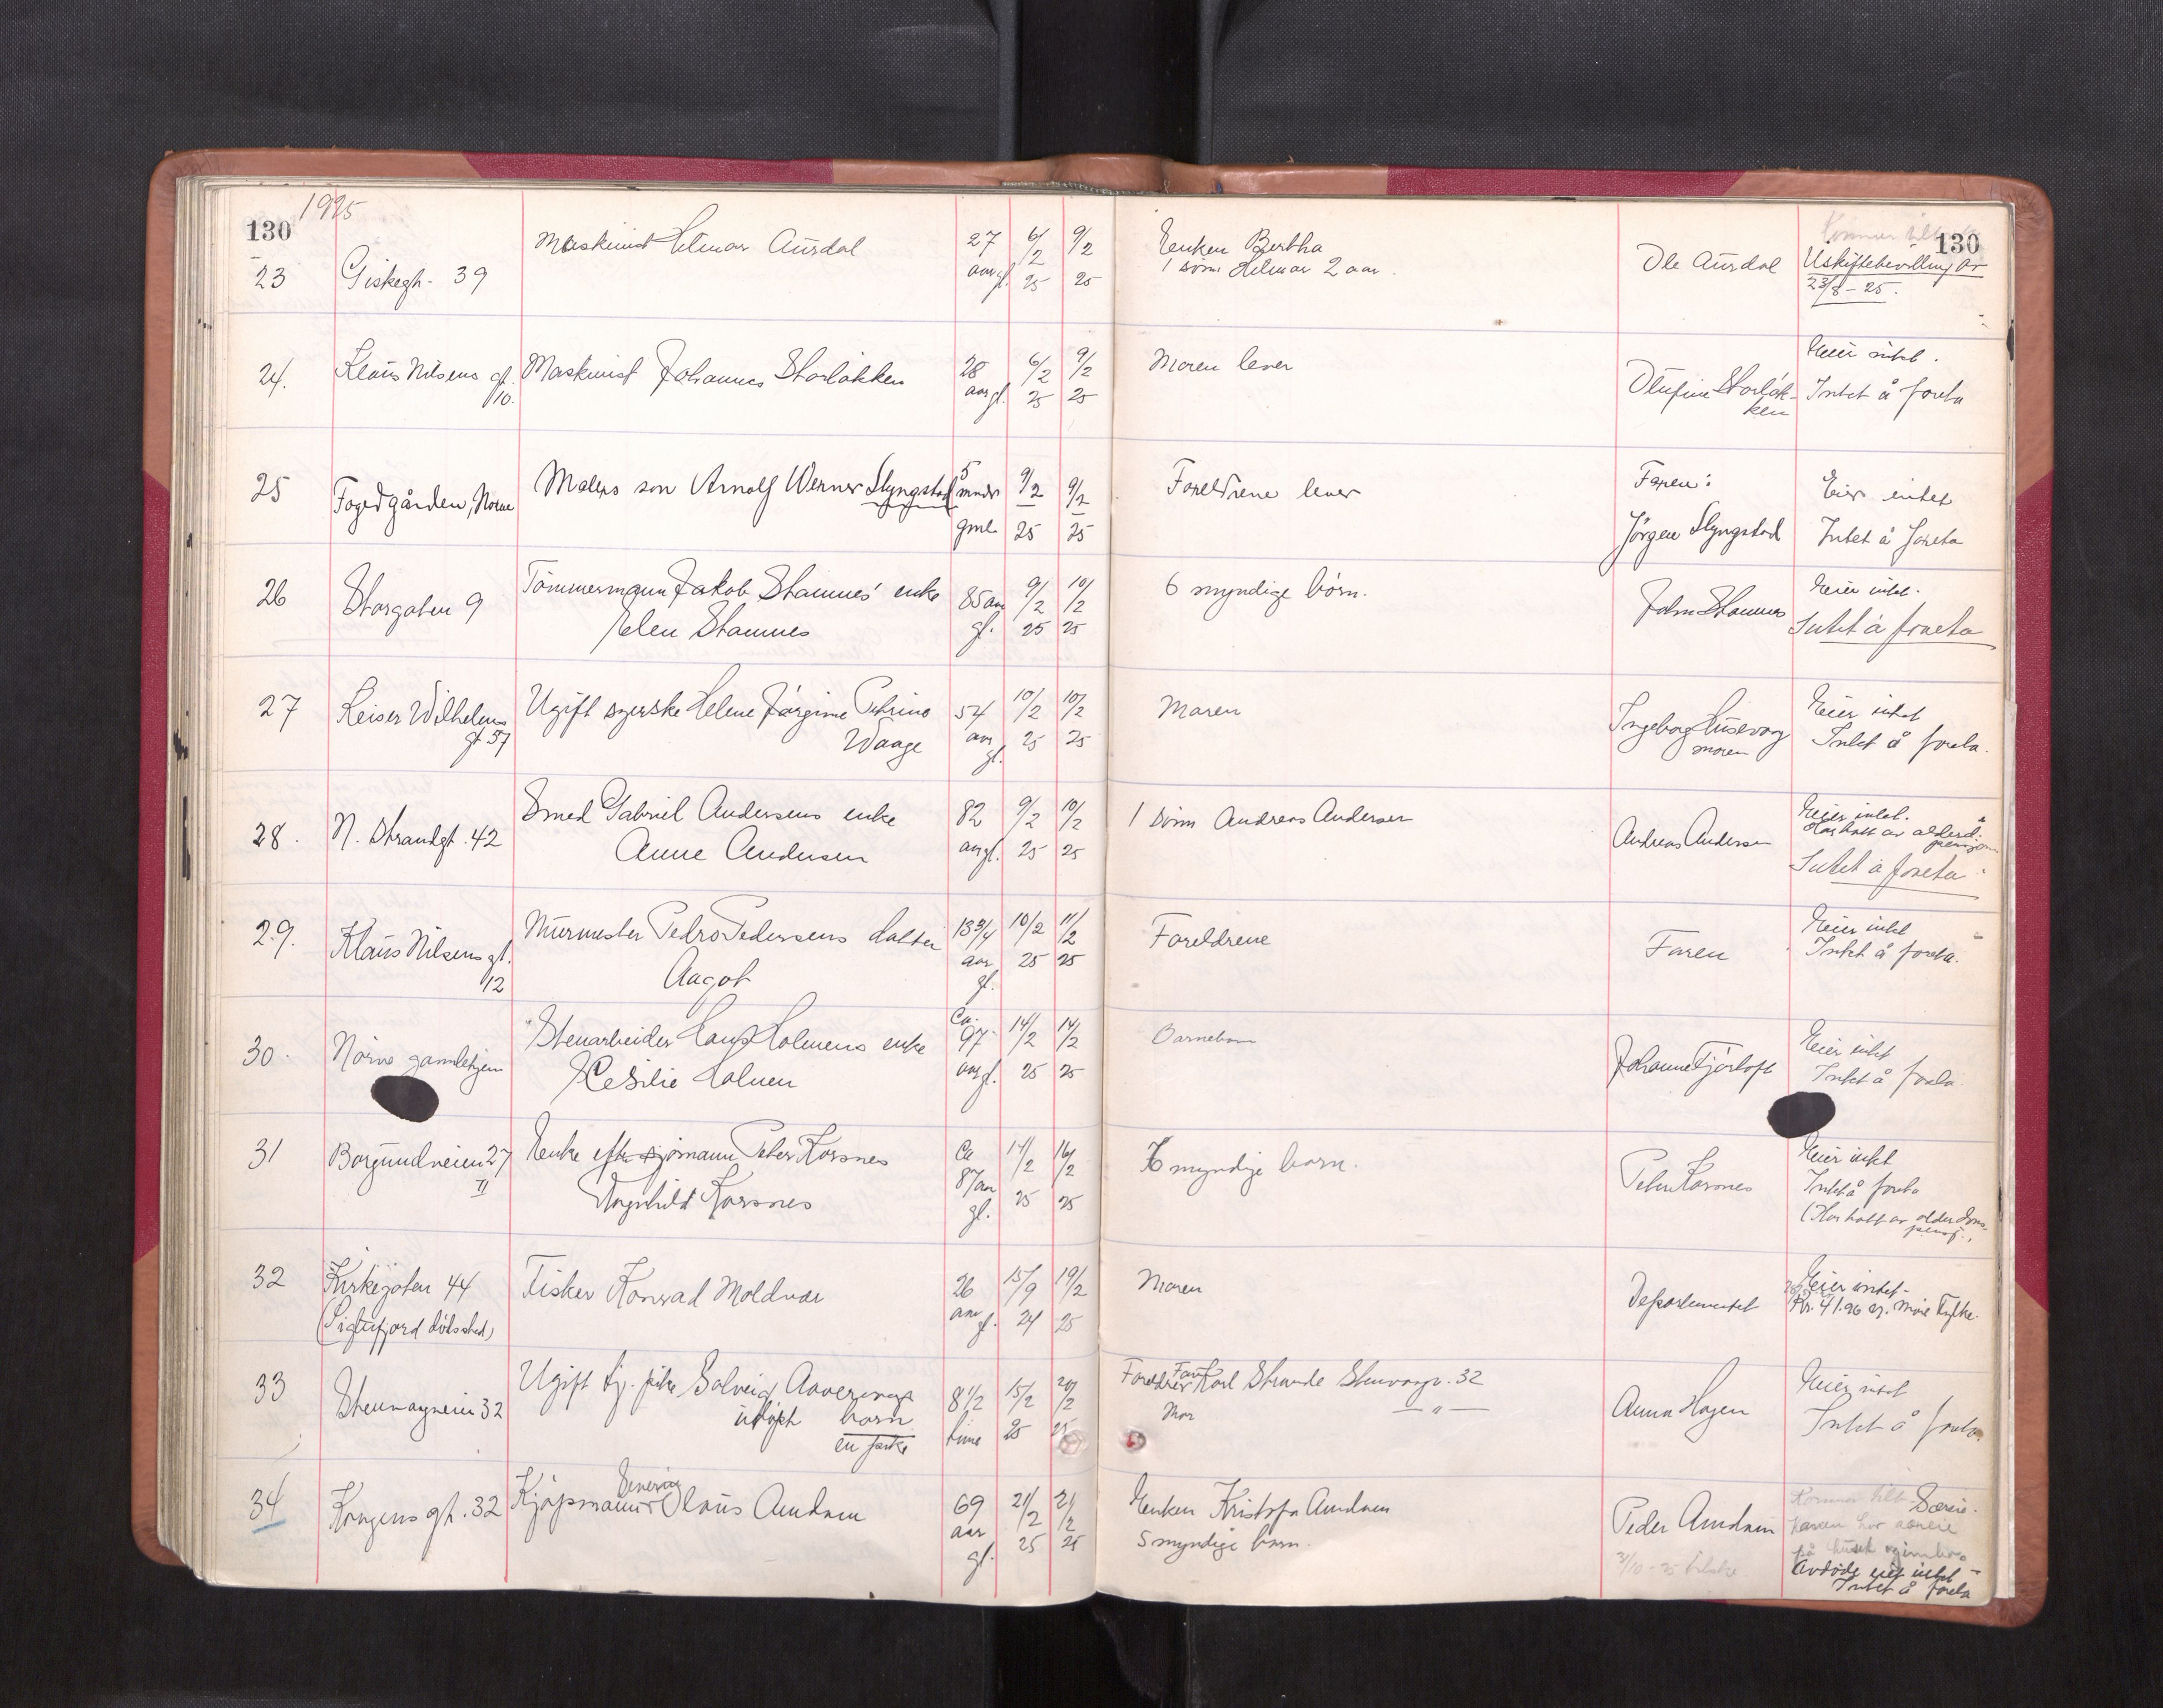 1925
130
23
Giskegt. 39
Maskinist Hilmar Aursdal
27 aar gl.
6/2 25
9/2 25
Enken Bertha
1 sönn Hilmar 2 aar.
Ole Aursdal
130
Uskiftebevilling av
23/8-25.
24.
Klaus Nilsens gt.
10.
Maskinist Johannes Storløkken
28 aar gl.
6/2 25
9/2 25
Moren lever
Olufine Storløk-
ken
Eier intet.
Intet å foreta
25
Fogedgården, Nørve
Malers søn Arnolf Werner Slyngstad
5 mndr gml
9/2 25
9/2 25
Foreldrene lever
Faren:
Jørgen Slyngstad
Eier intet
Intet å foreta
26
Storgaten 9
Tømmermann Jakob Stamnes' enke
Helen Stamnes
85 aar gl.
9/2 25
10/2 25
6 myndige børn.
John Stamnes
Eier intet.
Intet å foreta
27
Keiser Wilhelms
gt 57
Ugift syerske Helene Jørgine Petrine
Waage
54 aar gl.
10/2 25
10/2 25
Moren
Ingeborg Husevåg
moren
Eier intet
Intet å foreta.
28.
N. Strandgt. 42
Smed Gabriel Andersens enke
Anne Andersen
82 aar gl.
9/2 25
10/2 25
1 sönn Andreas Andersen
Andreas Andersen
Eier intet.
Har hatt av alderd.
pensjon
Intet å foreta
29.
Klaus Nilsens gt.
12
Murmester Pedro Pedersens datter
Aagot
13 3/4 aar gl.
10/2 25
11/2 25
Foreldrene
Faren
Eier intet
Intet å foreta.
30.
Nörve gamlehjem
Stenarbeider Hans Holmens enke
Cesilie Holmen
Ca. 97 aar gl.
14/2 25
14/2 25
Barnebarn
Johanne Fjørtoft
Eier intet
Intet å foreta.
31
Borgundveien 27
II
Enke efter sjømann Peter Korsnes
Ragnhild Korsnes
Ca 87 aar gl.
14/2 25
16/2 25
6 myndige barn.
Peter Korsnes
Eier intet
Intet å foreta
(Har hatt av alderdoms
pensj.)
32
Kirkegaten 44
(Siglufjord dödssted)
Fisker Konrad Moldvær
26 aar gl.
15/9 24
19/2 25
Moren
Departementet
Eier intet -
Kr. 41.96 Møre Fylke.
33
Stenvagveien 32
Ugift tj. pike Solveig
udøpt barn
en pike
8 1/2 time
15/2 25
20/2 25
Foreldre: Far Karl Strande Stenvaagv. 32
Mor — " —
Anna Hagen
Eier intet
Intet å foreta.
34
Kongens gt. 32
Kjøpmann Olaus Amdam
69 aar gl.
21/2 25
21/2 25
Enken Kristofa Amdam
5 myndige barn.
Peder Amdam
3/10-25
Særeie.
Avdöde eiet intet -
Intet å foreta